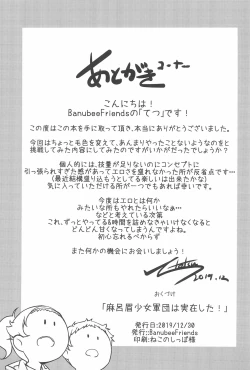 あとがきコーナー
こんにちは！
BanubeeFriendsの「てつ」です！
この度はこの本を手に取って頂き、本当にありがとうございました。
今回はちょっとも色を変えて、あんまりやったことないようなのを
挑戦してみた内容にしてみたのですがいかがだったでしょうか？
個人的には、技量が足りないのにコンセプトに
引っ張られすぎた感があってエロさを出しきれなかった所が反省点です…
（最近結構盛り込もうとしてる楽しいは出来たかな）
気に入っていただける所が一つでもあれば幸いです。
今度はエロとは何か
みたいな所もやれたらいいなぁ…
などと考えている次第
これ、ずっとやってる時間を詰めなきゃいけなくなると
どんどん甘くなってしまうんですよね。
初心忘れるべからず
また何かの機会にお会いしましょう！
2019.12
おくづけ
「麻呂眉少女軍団は実在した！」
発行日:2019/12/30
発行:BanubeeFriends
印刷:ねこのしっぽ様